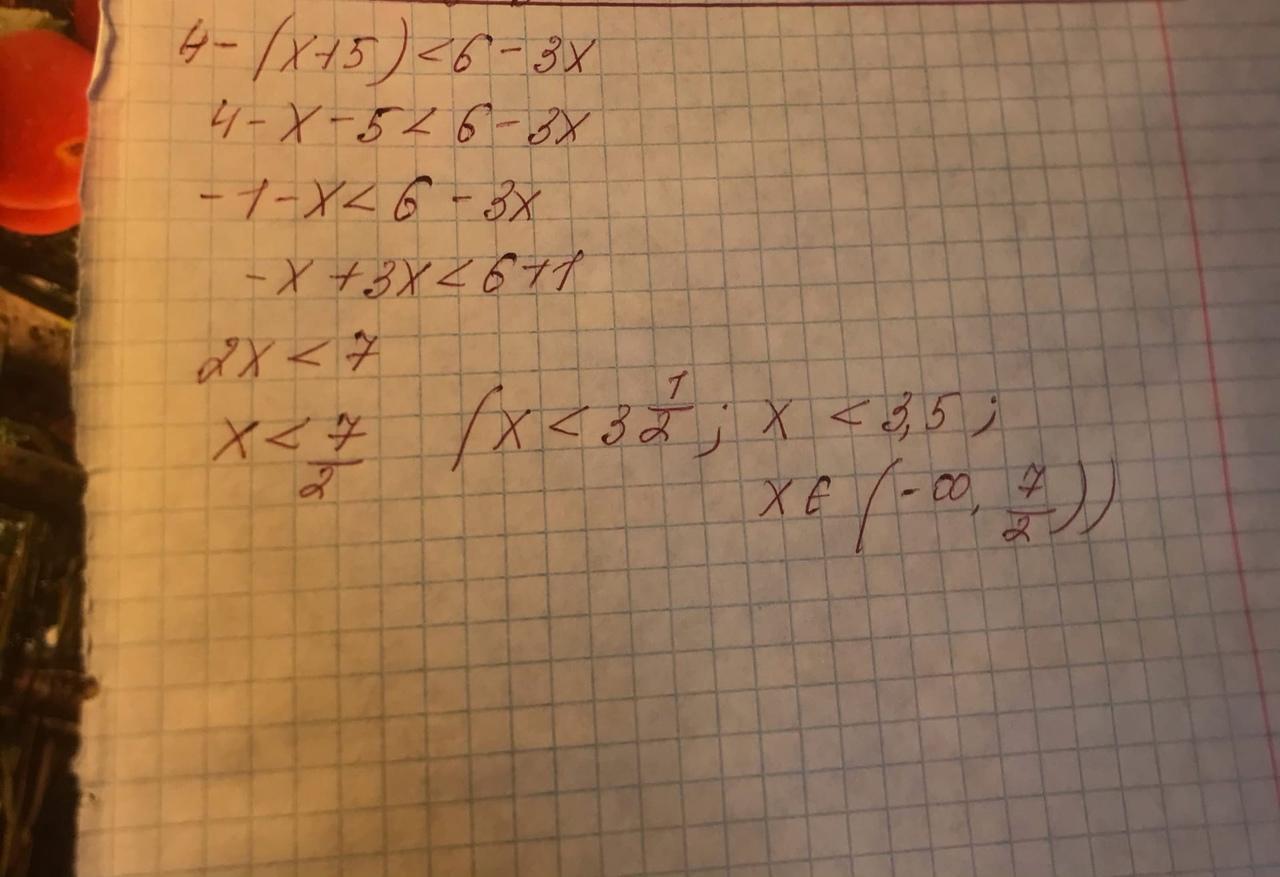 4 - (x+5) < 6 - 3x
4 - x - 5 < 6 - 3x
-1 - x < 6 - 3x
-x + 3x < 6 + 1
2x < 7
x < 7/2 (x < 3 1/2; x < 3,5;
x ∈ (-∞, 7/2))